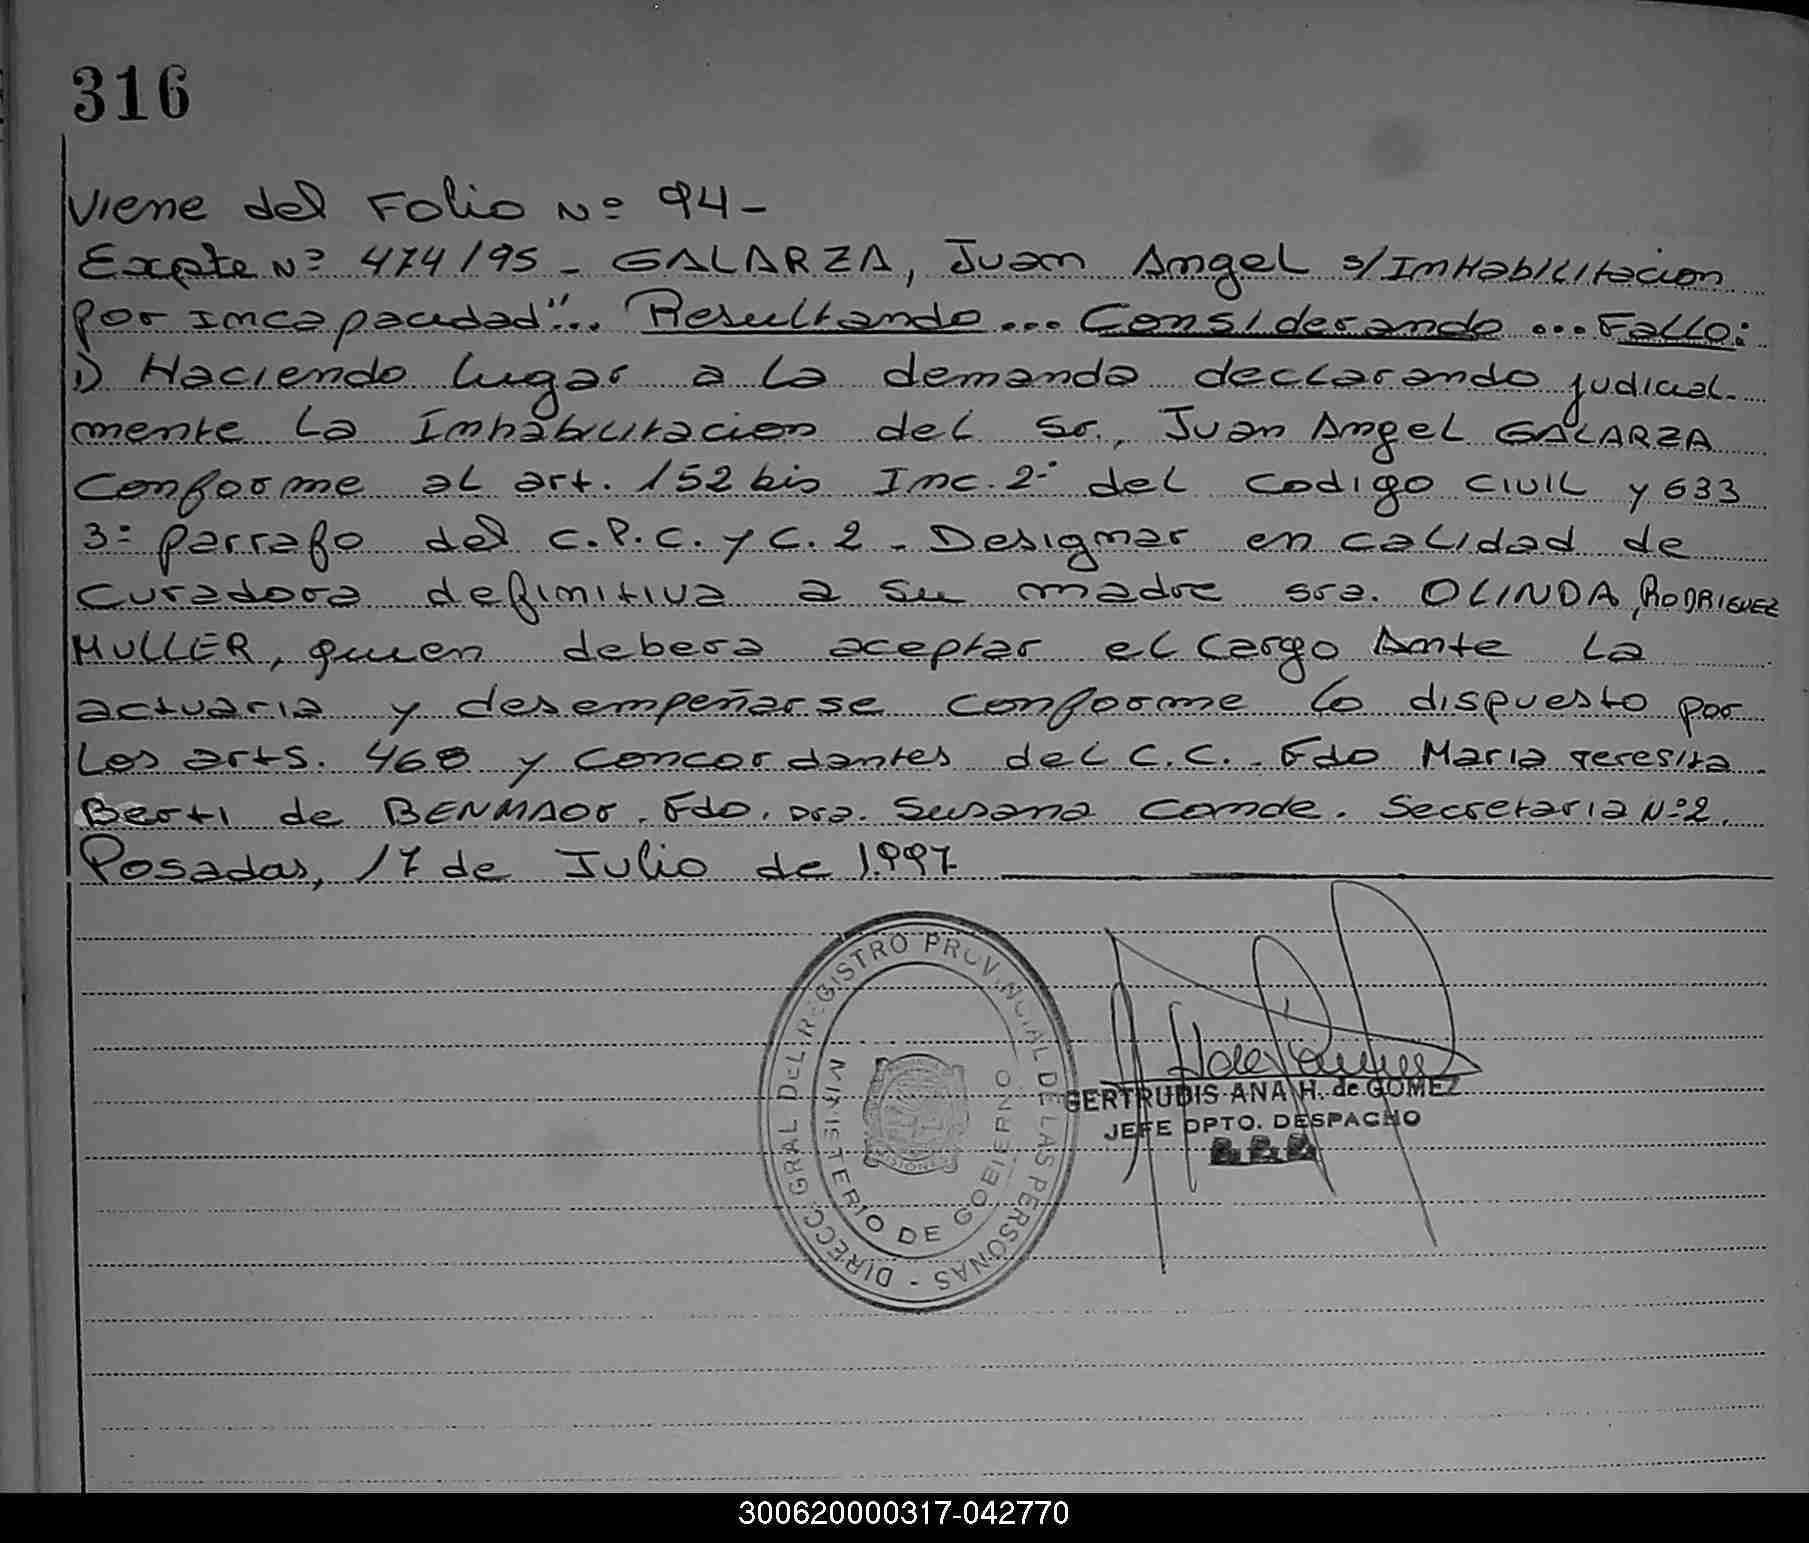 316
Viene del Folio Nº 94-
Expte Nº 474/95 - GALARZA, Juan Angel s/InHabilitacion
por incapacidad"... Resultando... Considerando... Fallo:
1) Haciendo lugar a la demanda declarando judicial-
mente la Inhabilitacion del Sr., Juan Angel GALARZA
Conforme al art. 152 bis Inc. 2º del Codigo Civil y 633
3º parrafo del C.P.C. y C. 2 - Designar en calidad de
Curadora definitiva a su madre sra. OLINDA, RODRIGUEZ
MULLER, quien debera aceptar el Cargo Ante la
actuaria y desempeñarse conforme lo dispuesto por
los arts. 468 y concordantes del C.C. - Fdo Maria Teresita
Berti de BENMAOR. Fdo. Dra. Susana Conde. Secretaria Nº 2.
Posadas, 17 de Julio de 1.997
DIRECC. GRAL DEL REGISTRO PROVINCIAL DE LAS PERSONAS -
MINISTERIO DE GOBIERNO
MISIONES
GERTRUDIS ANA H. de GOMEZ
JEFE DPTO. DESPACHO
300620000317-042770